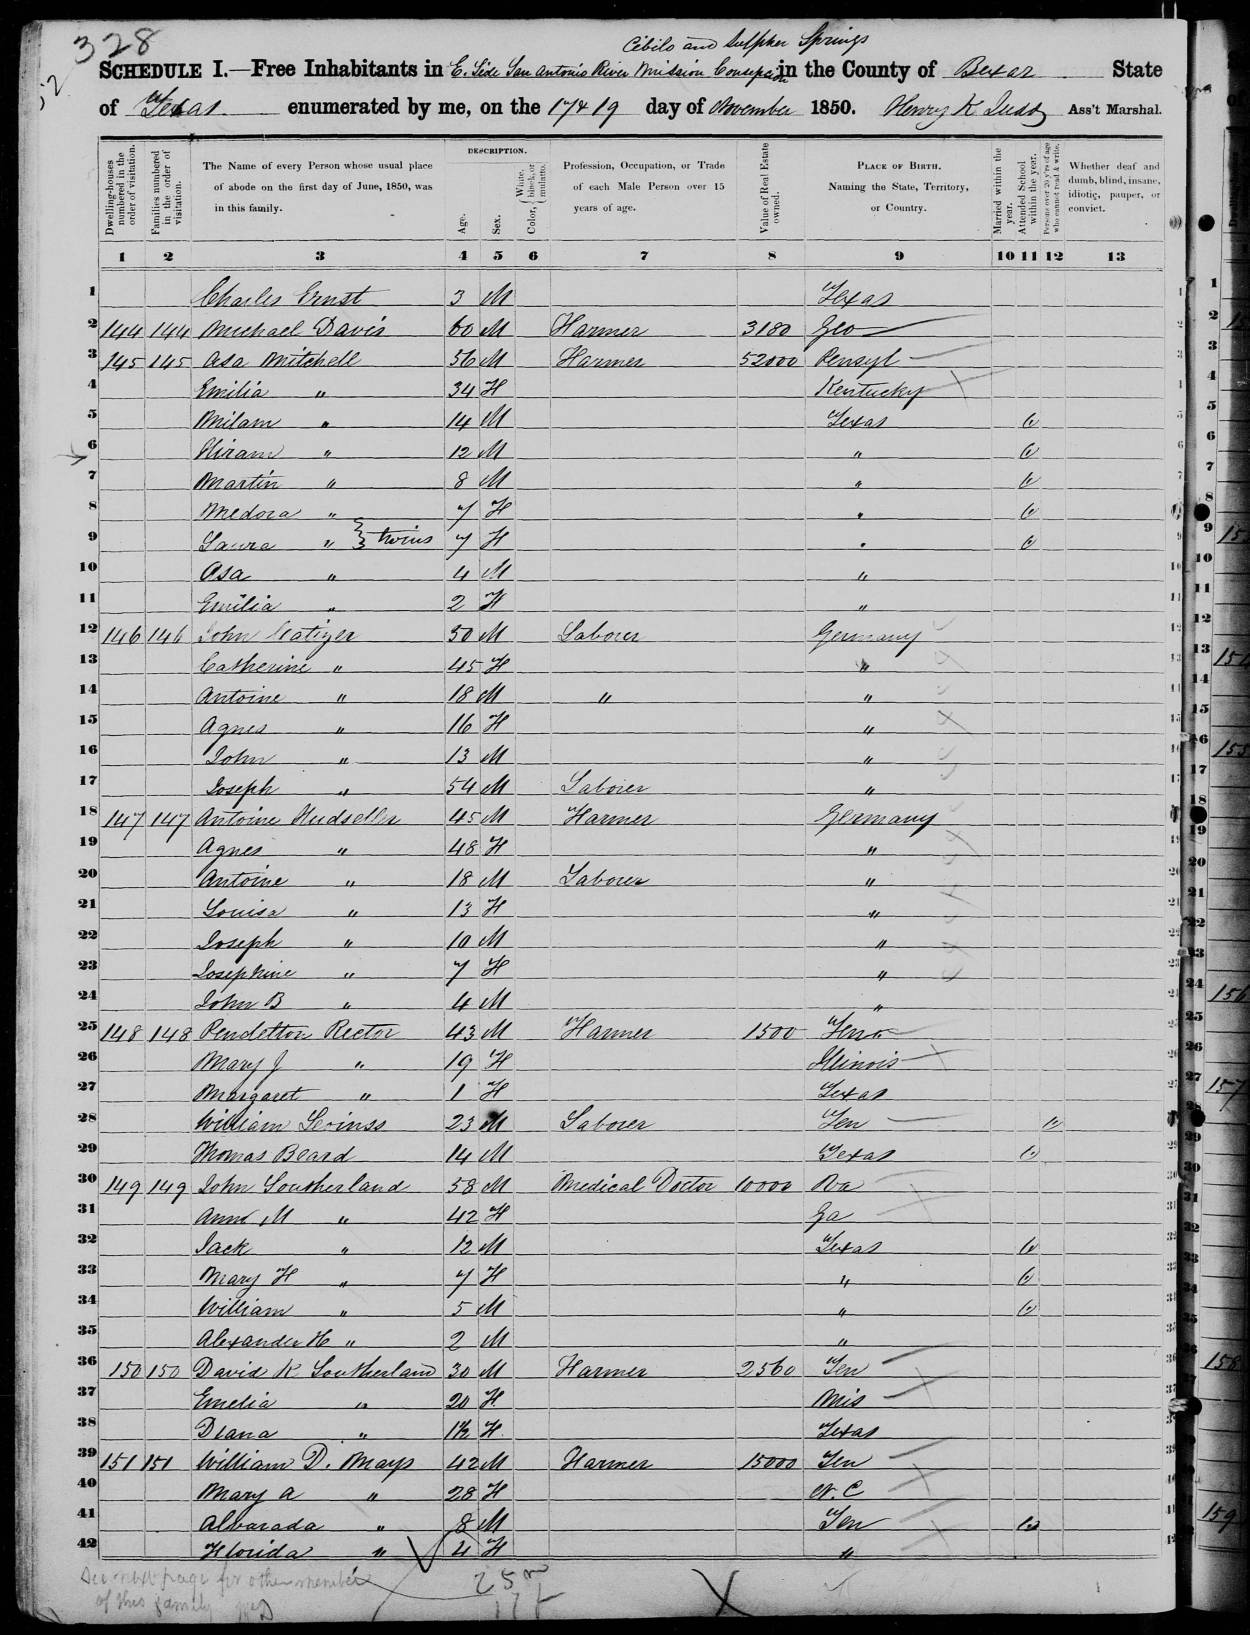 328
52
Cibilo and Sulpher Springs
SCHEDULE I.—Free Inhabitants in E. Side San Antonio River Mission Consepcion in the County of Bexar State
of Texas enumerated by me, on the 17 & 19 day of November 1850. Henry K Judd Ass't Marshal.
Dwelling-houses numbered in the order of visitation.
Families numbered in the order of visitation.
The Name of every Person whose usual place of abode on the first day of June, 1850, was in this family.
DESCRIPTION.
Age.
Sex.
Color, { White, black, or mulatto.
Profession, Occupation, or Trade of each Male Person over 15 years of age.
Value of Real Estate owned.
PLACE OF BIRTH. Naming the State, Territory, or Country.
Married within the year.
Attended School within the year.
Persons over 20 y'rs of age who cannot read & write.
Whether deaf and dumb, blind, insane, idiotic, pauper, or convict.
1 2 3 4 5 6 7 8 9 10 11 12 13
1 Charles Ernst 3 M Texas
2 144 144 Michael Davis 60 M Farmer 3180 Geo
3 145 145 Asa Mitchell 56 M Farmer 52000 Pensyl
4 Emilia " 34 F Kentucky
5 Milam " 14 M Texas 1
6 Hiram " 12 M " 1
7 Martin " 8 M " 1
8 Medora " 7 F " 1
9 Laura " } twins 7 F " 1
10 Asa " 4 M "
11 Emilia " 2 F "
12 146 146 John 50 M Laborer Germany
13 Catherine " 45 F "
14 Antoine " 18 M " "
15 Agnes " 16 F "
16 John " 13 M "
17 Joseph " 54 M Laborer "
18 147 147 Antoine 45 M Farmer Germany
19 Agnes " 48 F "
20 Antoine " 18 M Laborer "
21 Louisa " 13 F "
22 Joseph " 10 M "
23 Josephine " 7 F "
24 John B " 4 M "
25 148 148 Pendelton Rector 43 M Farmer 1500 Ten
26 Mary J " 19 F Illinois
27 Margaret " 1 F Texas
28 William 23 M Laborer Ten 1
29 Thomas Beard 14 M Texas 1
30 149 149 John Southerland 58 M Medical Doctor 10000 Va
31 Ann M " 42 F Ga
32 Jack " 12 M Texas 1
33 Mary F " 7 F " 1
34 William " 5 M " 1
35 Alexander H " 2 M "
36 150 150 David K Southerland 30 M Farmer 2560 Ten
37 Emelia " 20 F Mis
38 Diana " F Texas
39 151 151 William D. Mays 42 M Farmer 15000 Ten
40 Mary A " 28 F N. C
41 Alvarada " 8 M Ten 1
42 Florida " 4 F "
See next page for other member
of this family
25 m
17 f